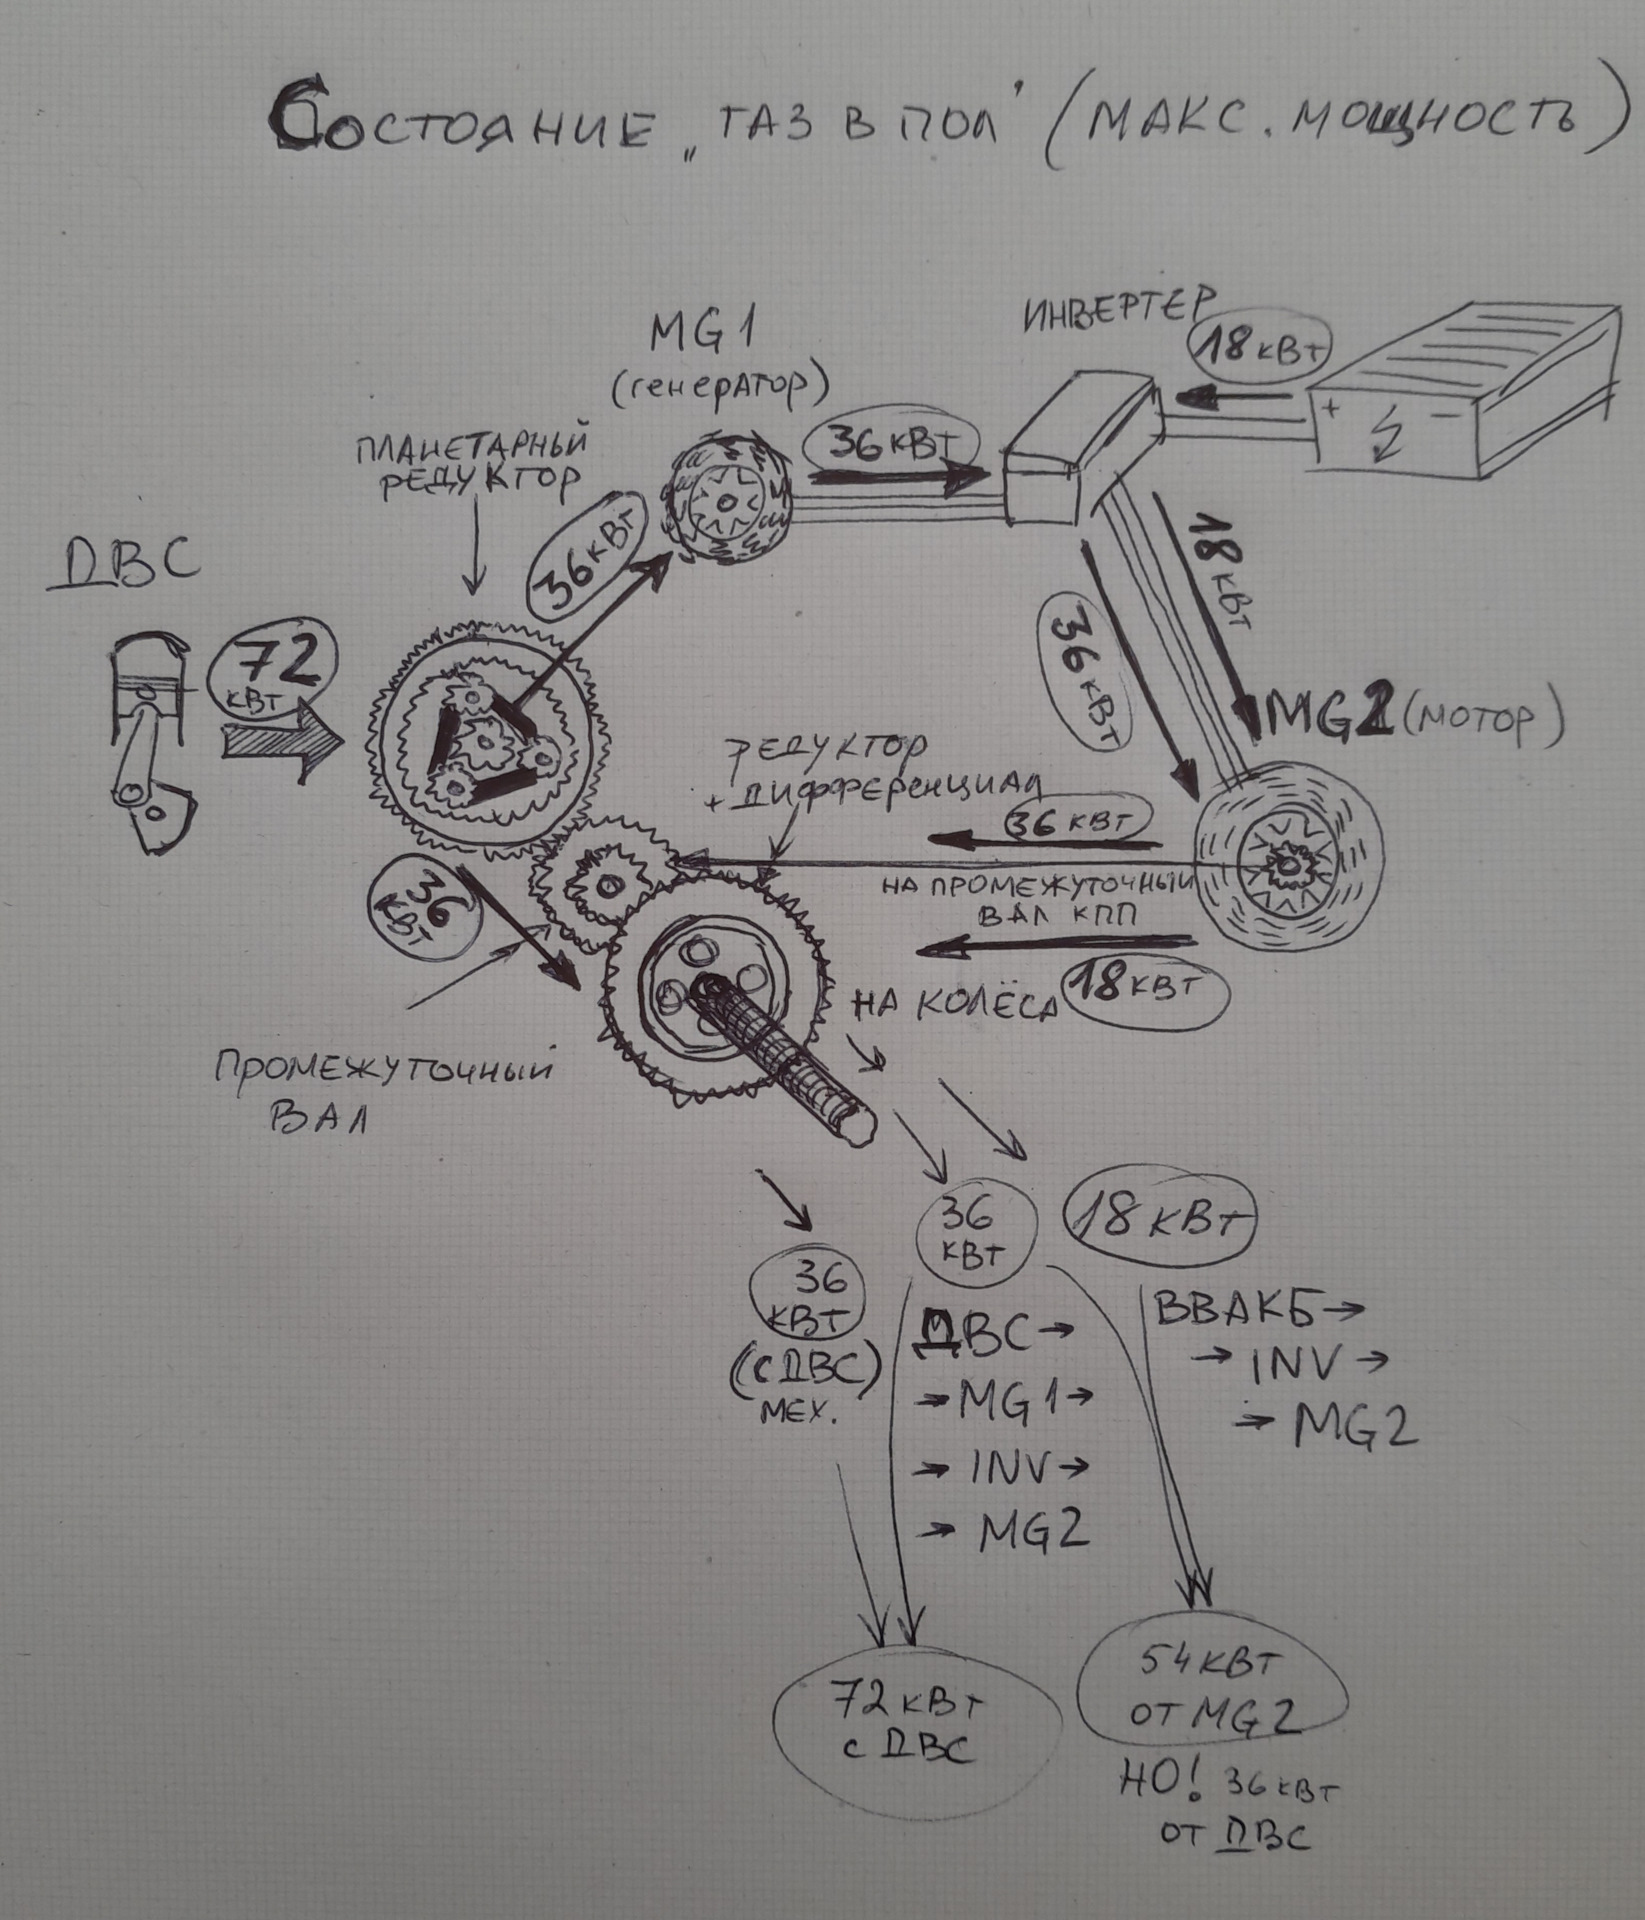 Состояние „ГАЗ В ПОЛ" (МАКС. МОЩНОСТЬ)
MG1
(генератор)
ИНВЕРТЕР
18 кВт
+ −
36 кВт
ПЛАНЕТАРНЫЙ
РЕДУКТОР
36 кВт
18 кВт
ДВС
72
кВт
36 кВт
MG2 (мотор)
РЕДУКТОР
+ ДИФФЕРЕНЦИАЛ
36 кВт
НА ПРОМЕЖУТОЧНЫЙ
ВАЛ КПП
36
кВт
18 кВт
НА КОЛЁСА
ПРОМЕЖУТОЧНЫЙ
ВАЛ
36
кВт
18 кВт
36
кВт
(с ДВС)
МЕХ.
ДВС →
→ MG1 →
→ INV →
→ MG2
ВВАКБ →
→ INV →
→ MG2
72 кВт
с ДВС
54 кВт
от MG2
НО! 36 кВт
от ДВС